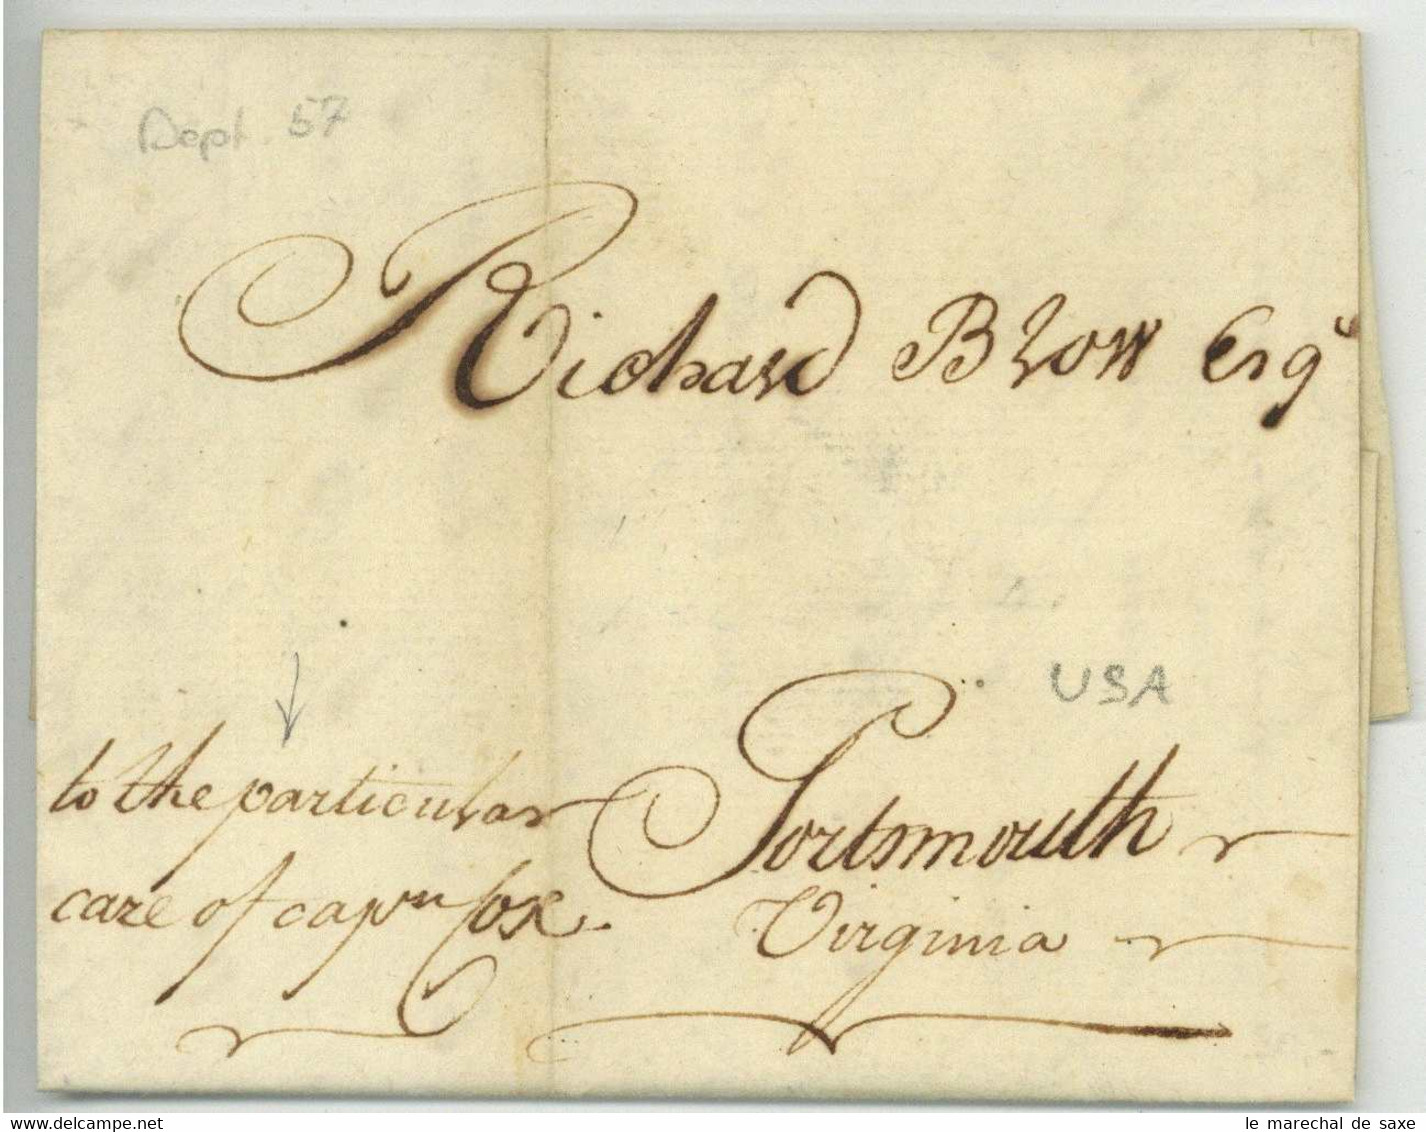 Dept. 57
Richard Blow Esqr
USA
to the particular
care of capn Cox.
Portsmouth
Virginia
www.delcampe.net
le marechal de saxe